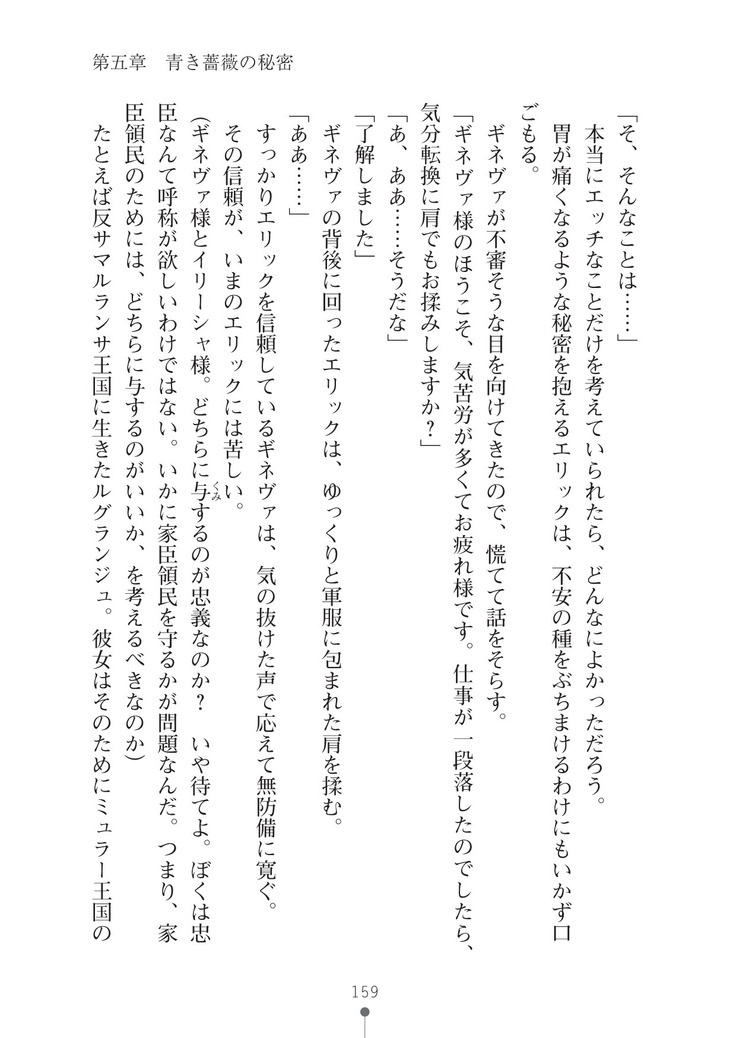 第五章　青き薔薇の秘密
「そ、そんなことは……」
　本当にエッチなことだけを考えていられたら、どんなによかっただろう。
　胃が痛くなるような秘密を抱えるエリックは、不安の種をぶちまけるわけにもいかず口
ごもる。
　ギネヴァが不審そうな目を向けてきたので、慌てて話をそらす。
「ギネヴァ様のほうこそ、気苦労が多くてお疲れ様です。仕事が一段落したのでしたら、
気分転換に肩でもお揉みしますか？」
「あ、ああ……そうだな」
「了解しました」
　ギネヴァの背後に回ったエリックは、ゆっくりと軍服に包まれた肩を揉む。
「ああ……」
　すっかりエリックを信頼しているギネヴァは、気の抜けた声で応えて無防備に寛ぐ。
　その信頼が、いまのエリックには苦しい。
（ギネヴァ様とイリーシャ様。どちらに与くみするのが忠義なのか？　いや待てよ。ぼくは忠
臣なんて呼称が欲しいわけではない。いかに家臣領民を守るかが問題なんだ。つまり、家
臣領民のためには、どちらに与するのがいいか、を考えるべきなのか）
　たとえば反サマルランサ王国に生きたルグランジュ。彼女はそのためにミュラー王国の
159